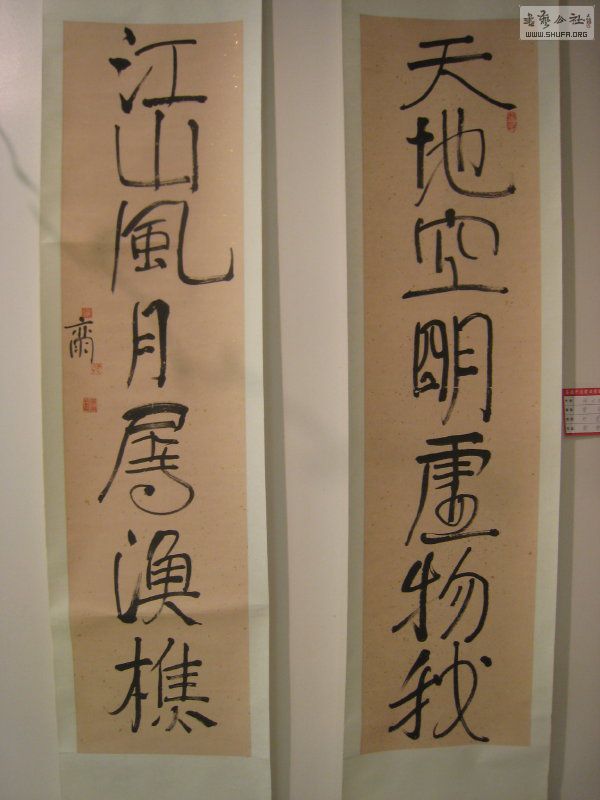 天地空明虛物我
江山風月屬漁樵
書藝公社
WWW.SHUFA.ORG